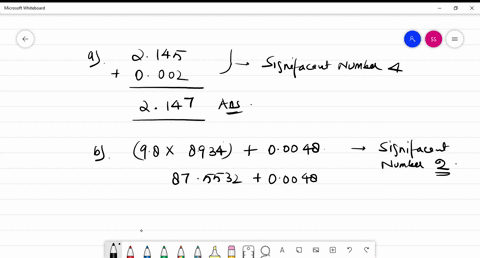 Microsoft Whiteboard
SS
a). 2.145
+ 0.002 → Signifacent Number 4
2.147 Ans.
b). (9.8 × 8934) + 0.0048 → Signifacent
Number 2.
87.5532 + 0.0048